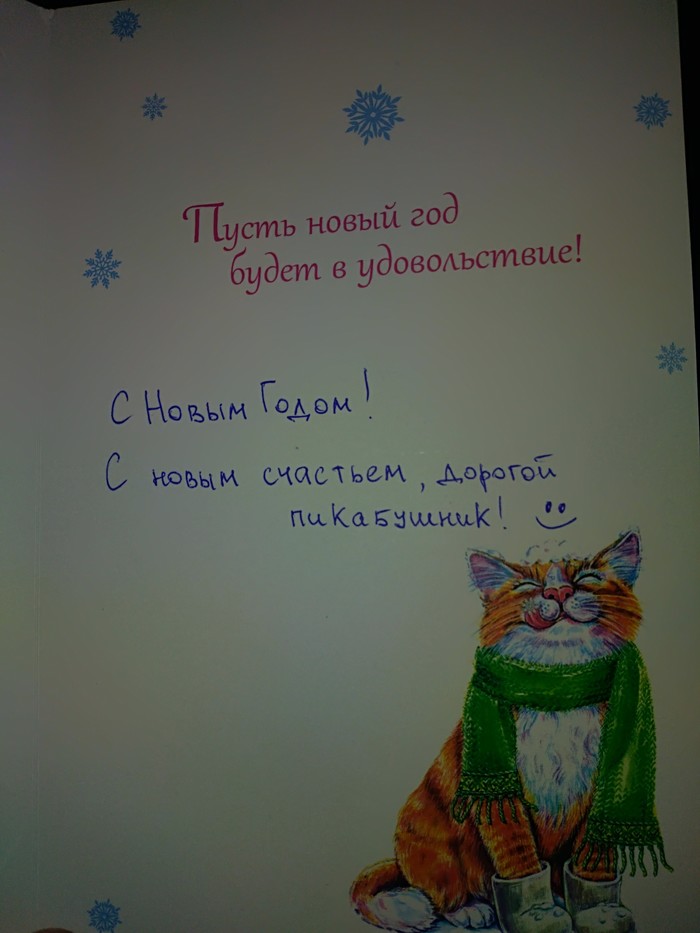 Пусть новый год
будет в удовольствие!
С Новым Годом!
С новым счастьем, дорогой
пикабушник!